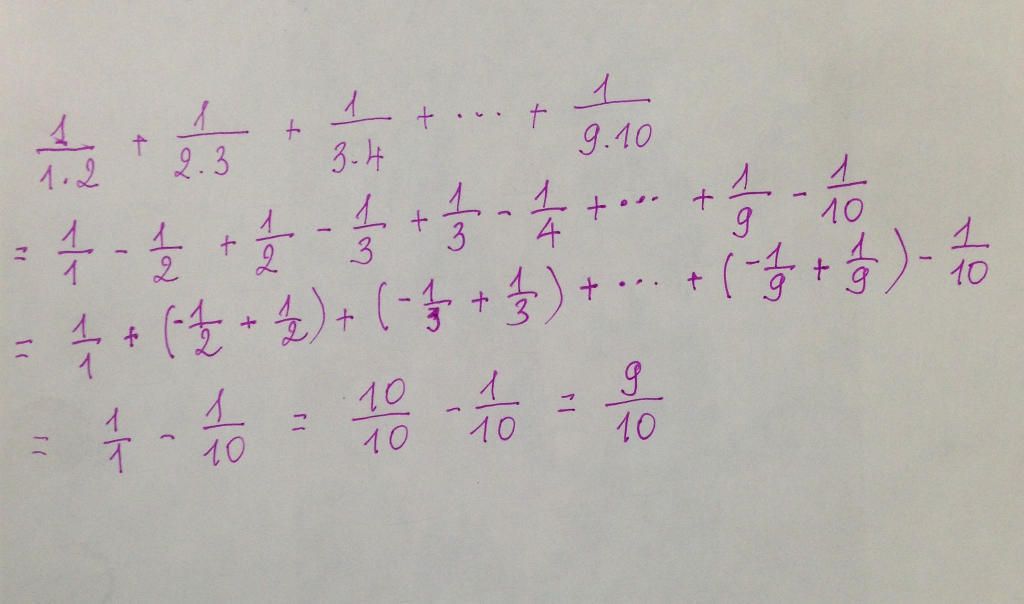 1/1.2 + 1/2.3 + 1/3.4 + ... + 1/9.10
= 1/1 - 1/2 + 1/2 - 1/3 + 1/3 - 1/4 + ... + 1/9 - 1/10
= 1/1 + (-1/2 + 1/2) + (-1/3 + 1/3) + ... + (-1/9 + 1/9) - 1/10
= 1/1 - 1/10 = 10/10 - 1/10 = 9/10